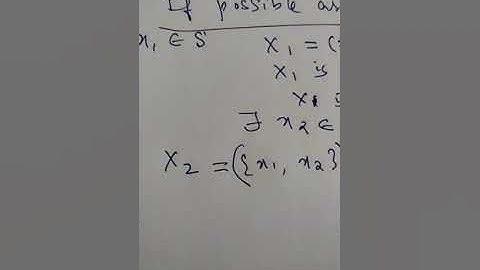 If possible as
x₁ ∈ S X₁ = (
X₁ is
X₁
∃ x₂ ∈
X₂ = ({x₁, x₂}